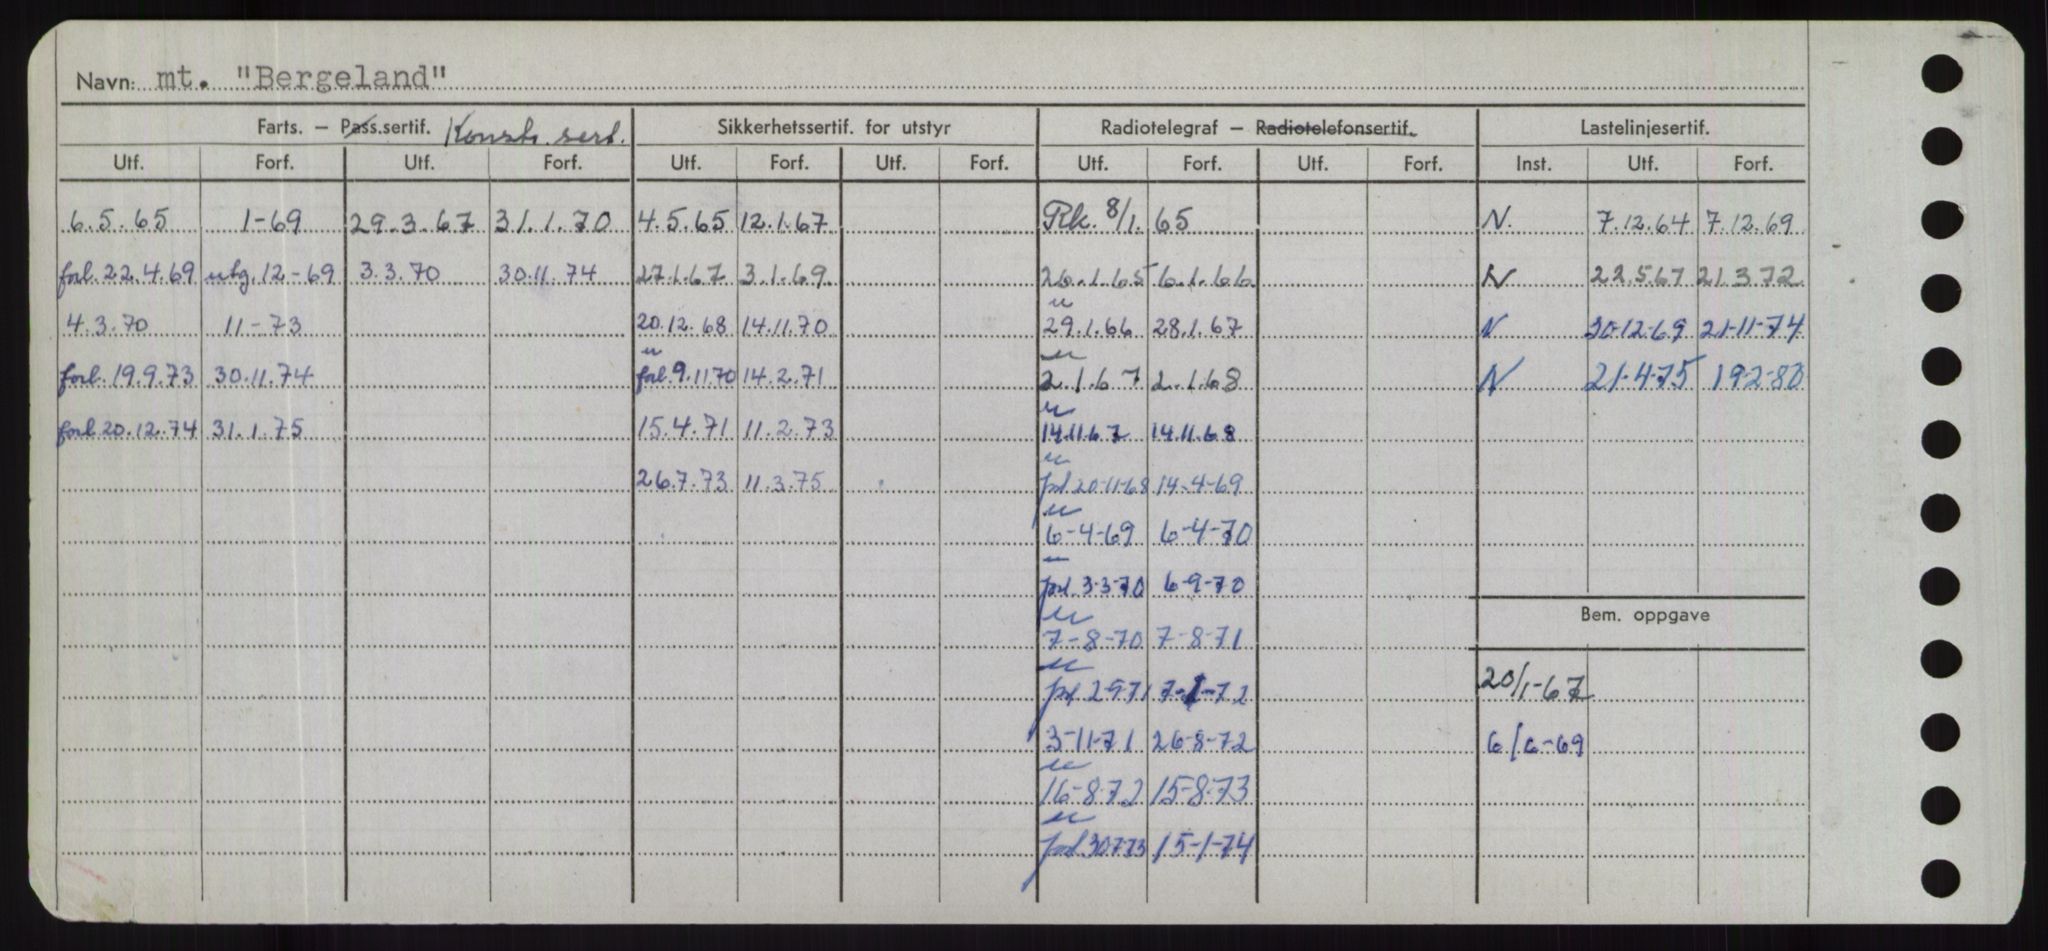 Navn: mt. "Bergeland"
Farts. – Pass.sertif. Konstr. sert. Sikkerhetssertif. for utstyr Radiotelegraf – Radiotelefonsertif. Lastelinjesertif.
Utf. Forf. Utf. Forf. Utf. Forf. Utf. Forf. Utf. Forf. Utf. Forf. Inst. Utf. Forf.
6.5.65 1-69 29.3.67 31.1.70 4.5.65 12.1.67 Rk. 8/1. 65 N. 7.12.64 7.12.69
forl. 22.4.69 utg. 12-69 3.3.70 30.11.74 27.1.67 3.1.69 26.1.65 6.1.66 N 22.5.67 21.3.72
4.3.70 11-73 20.12.68 14.11.70 29.1.66 28.1.67 N 30-12-69 21-11-74
forl. 19.9.73 30.11.74 forl. 9.11.70 14.2.71 2.1.67 2.1.68 N 21-4-75 19-2-80
forl. 20.12.74 31.1.75 15.4.71 11.2.73 14.11.67 14.11.68
26.7.73 11.3.75 forl 20-11-68 14-4-69
6-4-69 6-4-70
forl. 3-3-70 6-9-70
Bem. oppgave
7-8-70 7-8-71
20/1-67 forl 2-9-71 7-1-72
3-11-71 26-8-72 6/6-69
16-8-72 15-8-73
forl 30-7-73 15-1-74